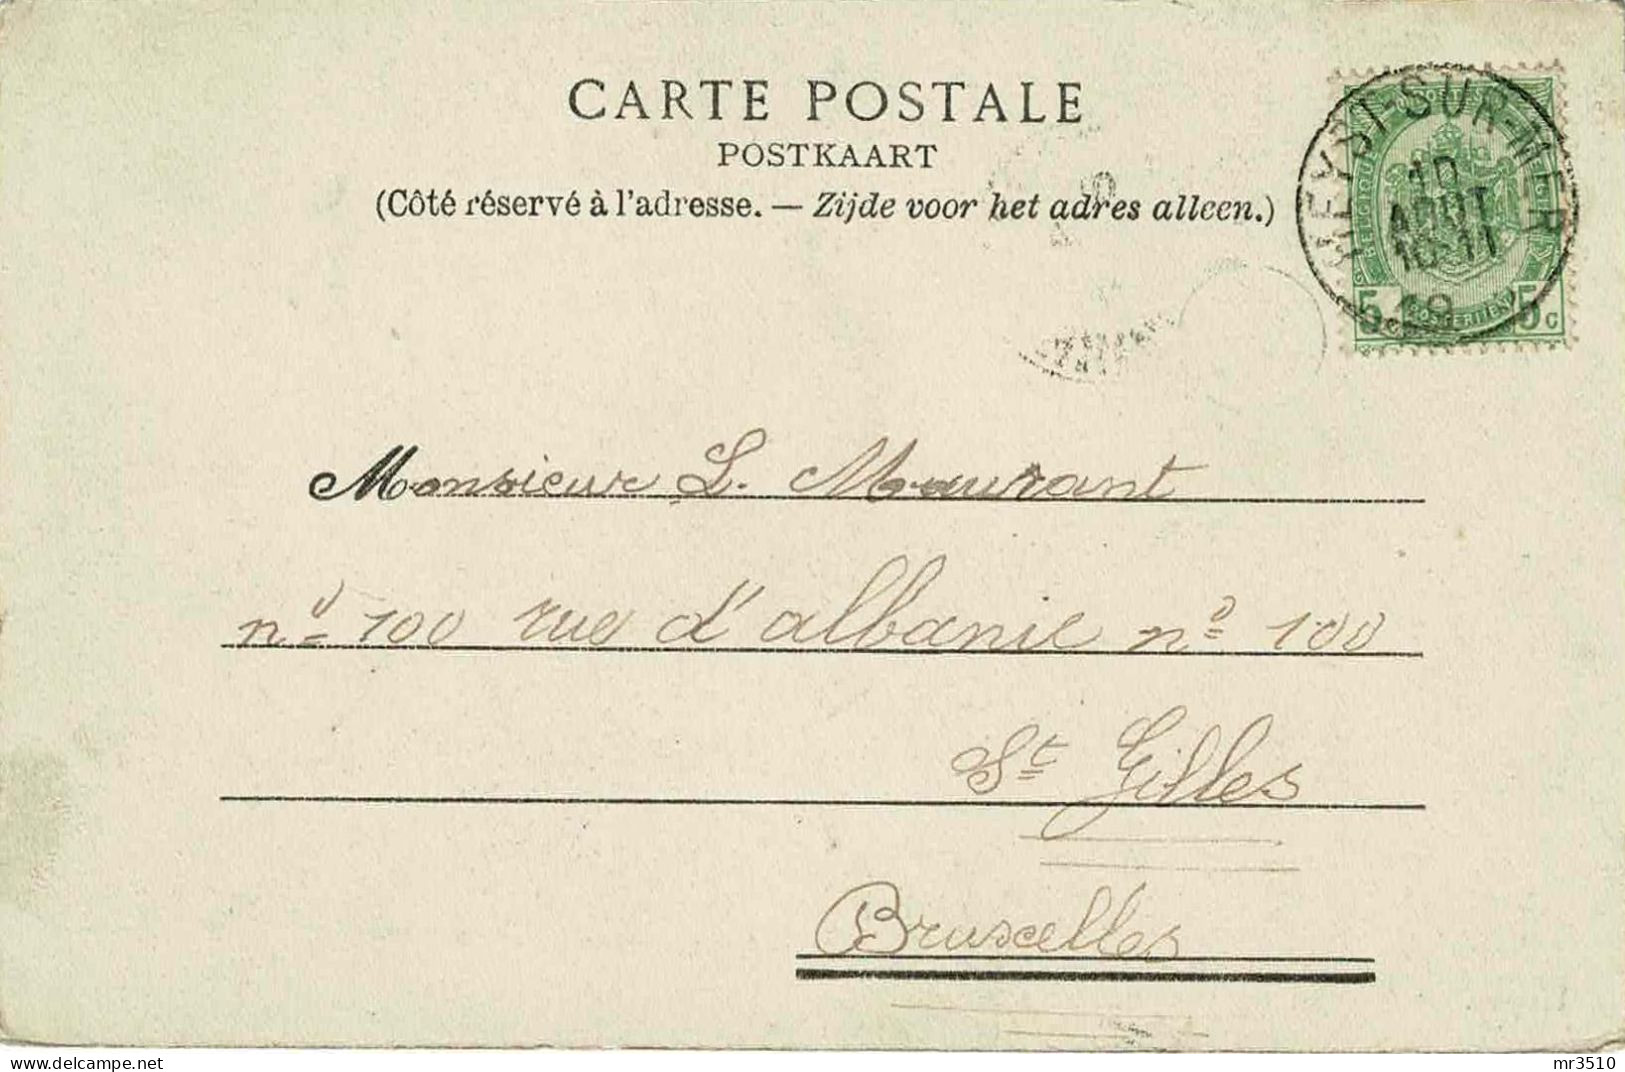 CARTE POSTALE
POSTKAART
(Côté réservé à l'adresse. — Zijde voor het adres alleen.)
HEYST-SUR-MER
10
AOUT
10-11
19
BELGIQUE
5 5c
Monsieur L. Maurant
nº 100 rue d'albanie nº 100
St Gilles
Bruxelles
www.delcampe.net
mr3510